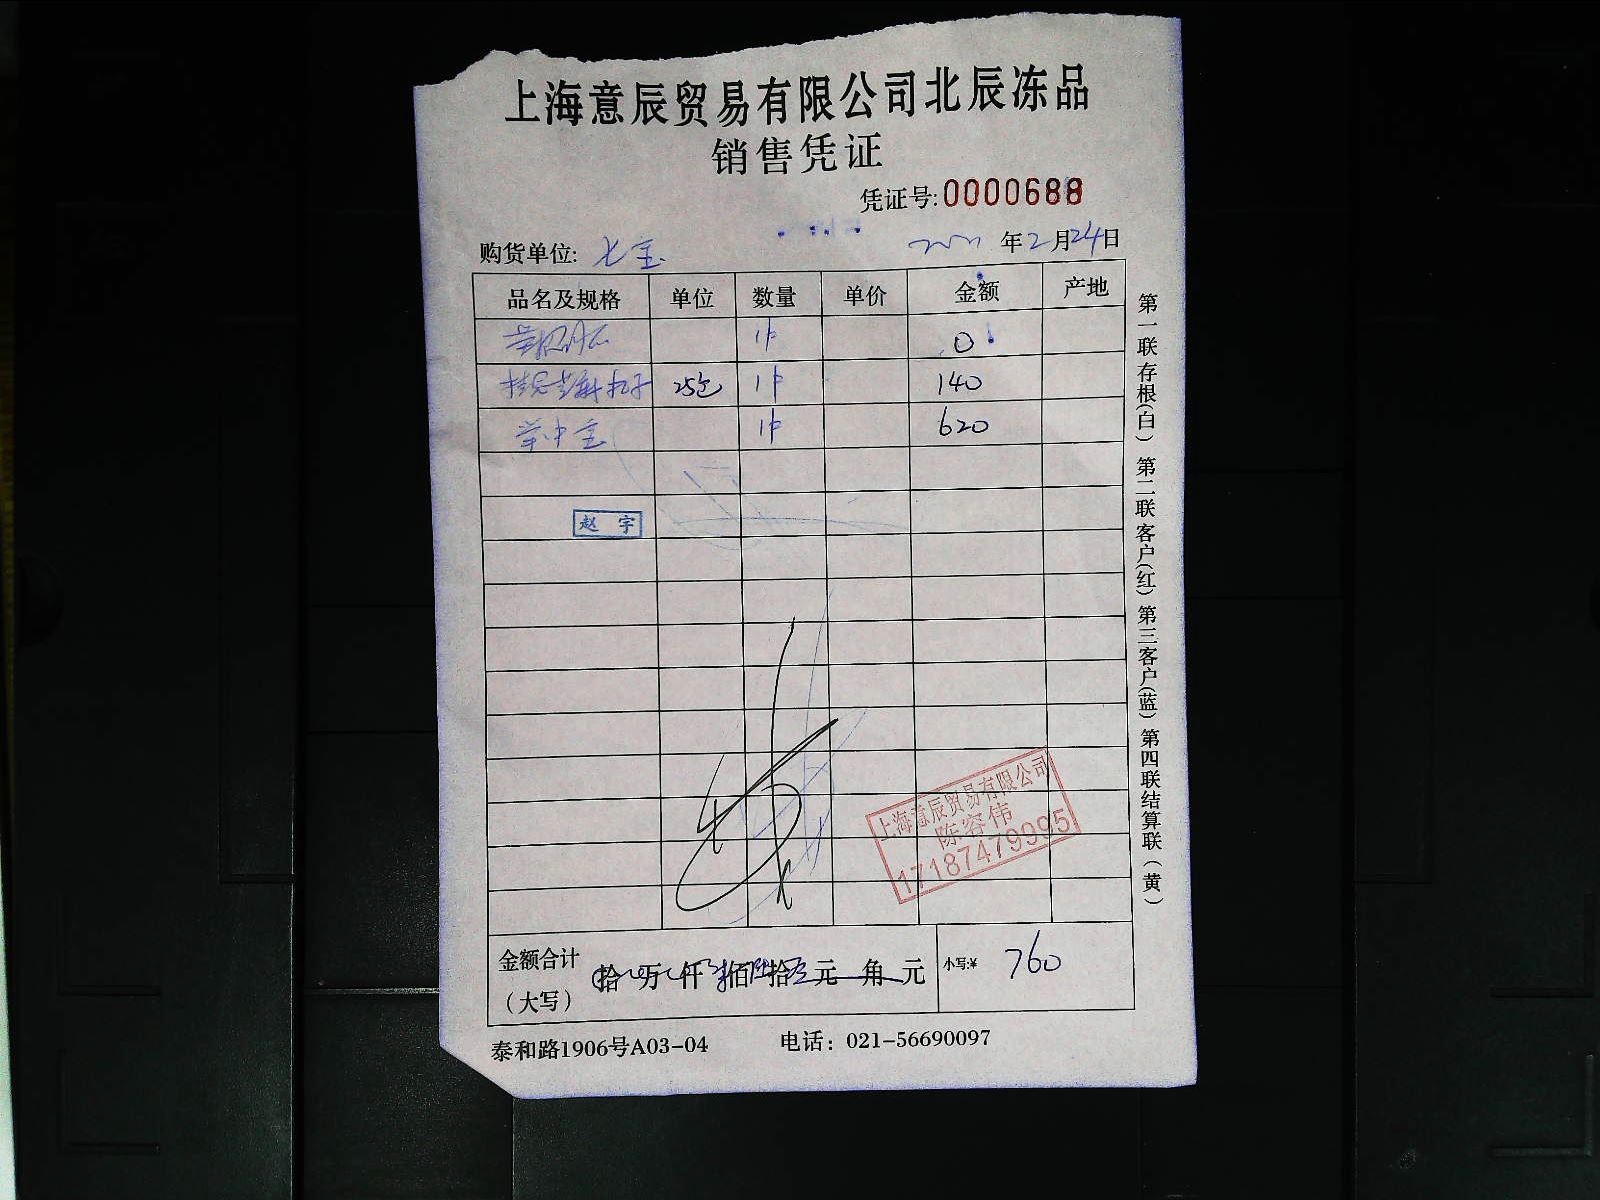 上海意辰贸易有限公司北辰冻品
销售凭证
凭证号:0000688
购货单位: 七宝 年2月24日
品名及规格 单位 数量 单价 金额 产地
1件 0
25包 1件 140
1件 620
赵 宇
上海意辰贸易有限公司
陈容伟
17187479995
金额合计
(大写)
拾 万 仟 佰 拾 元 角 元 小写:¥ 760
泰和路1906号A03-04 电话: 021-56690097
第一联存根(白) 第二联客户(红) 第三客户(蓝) 第四联结算联(黄)